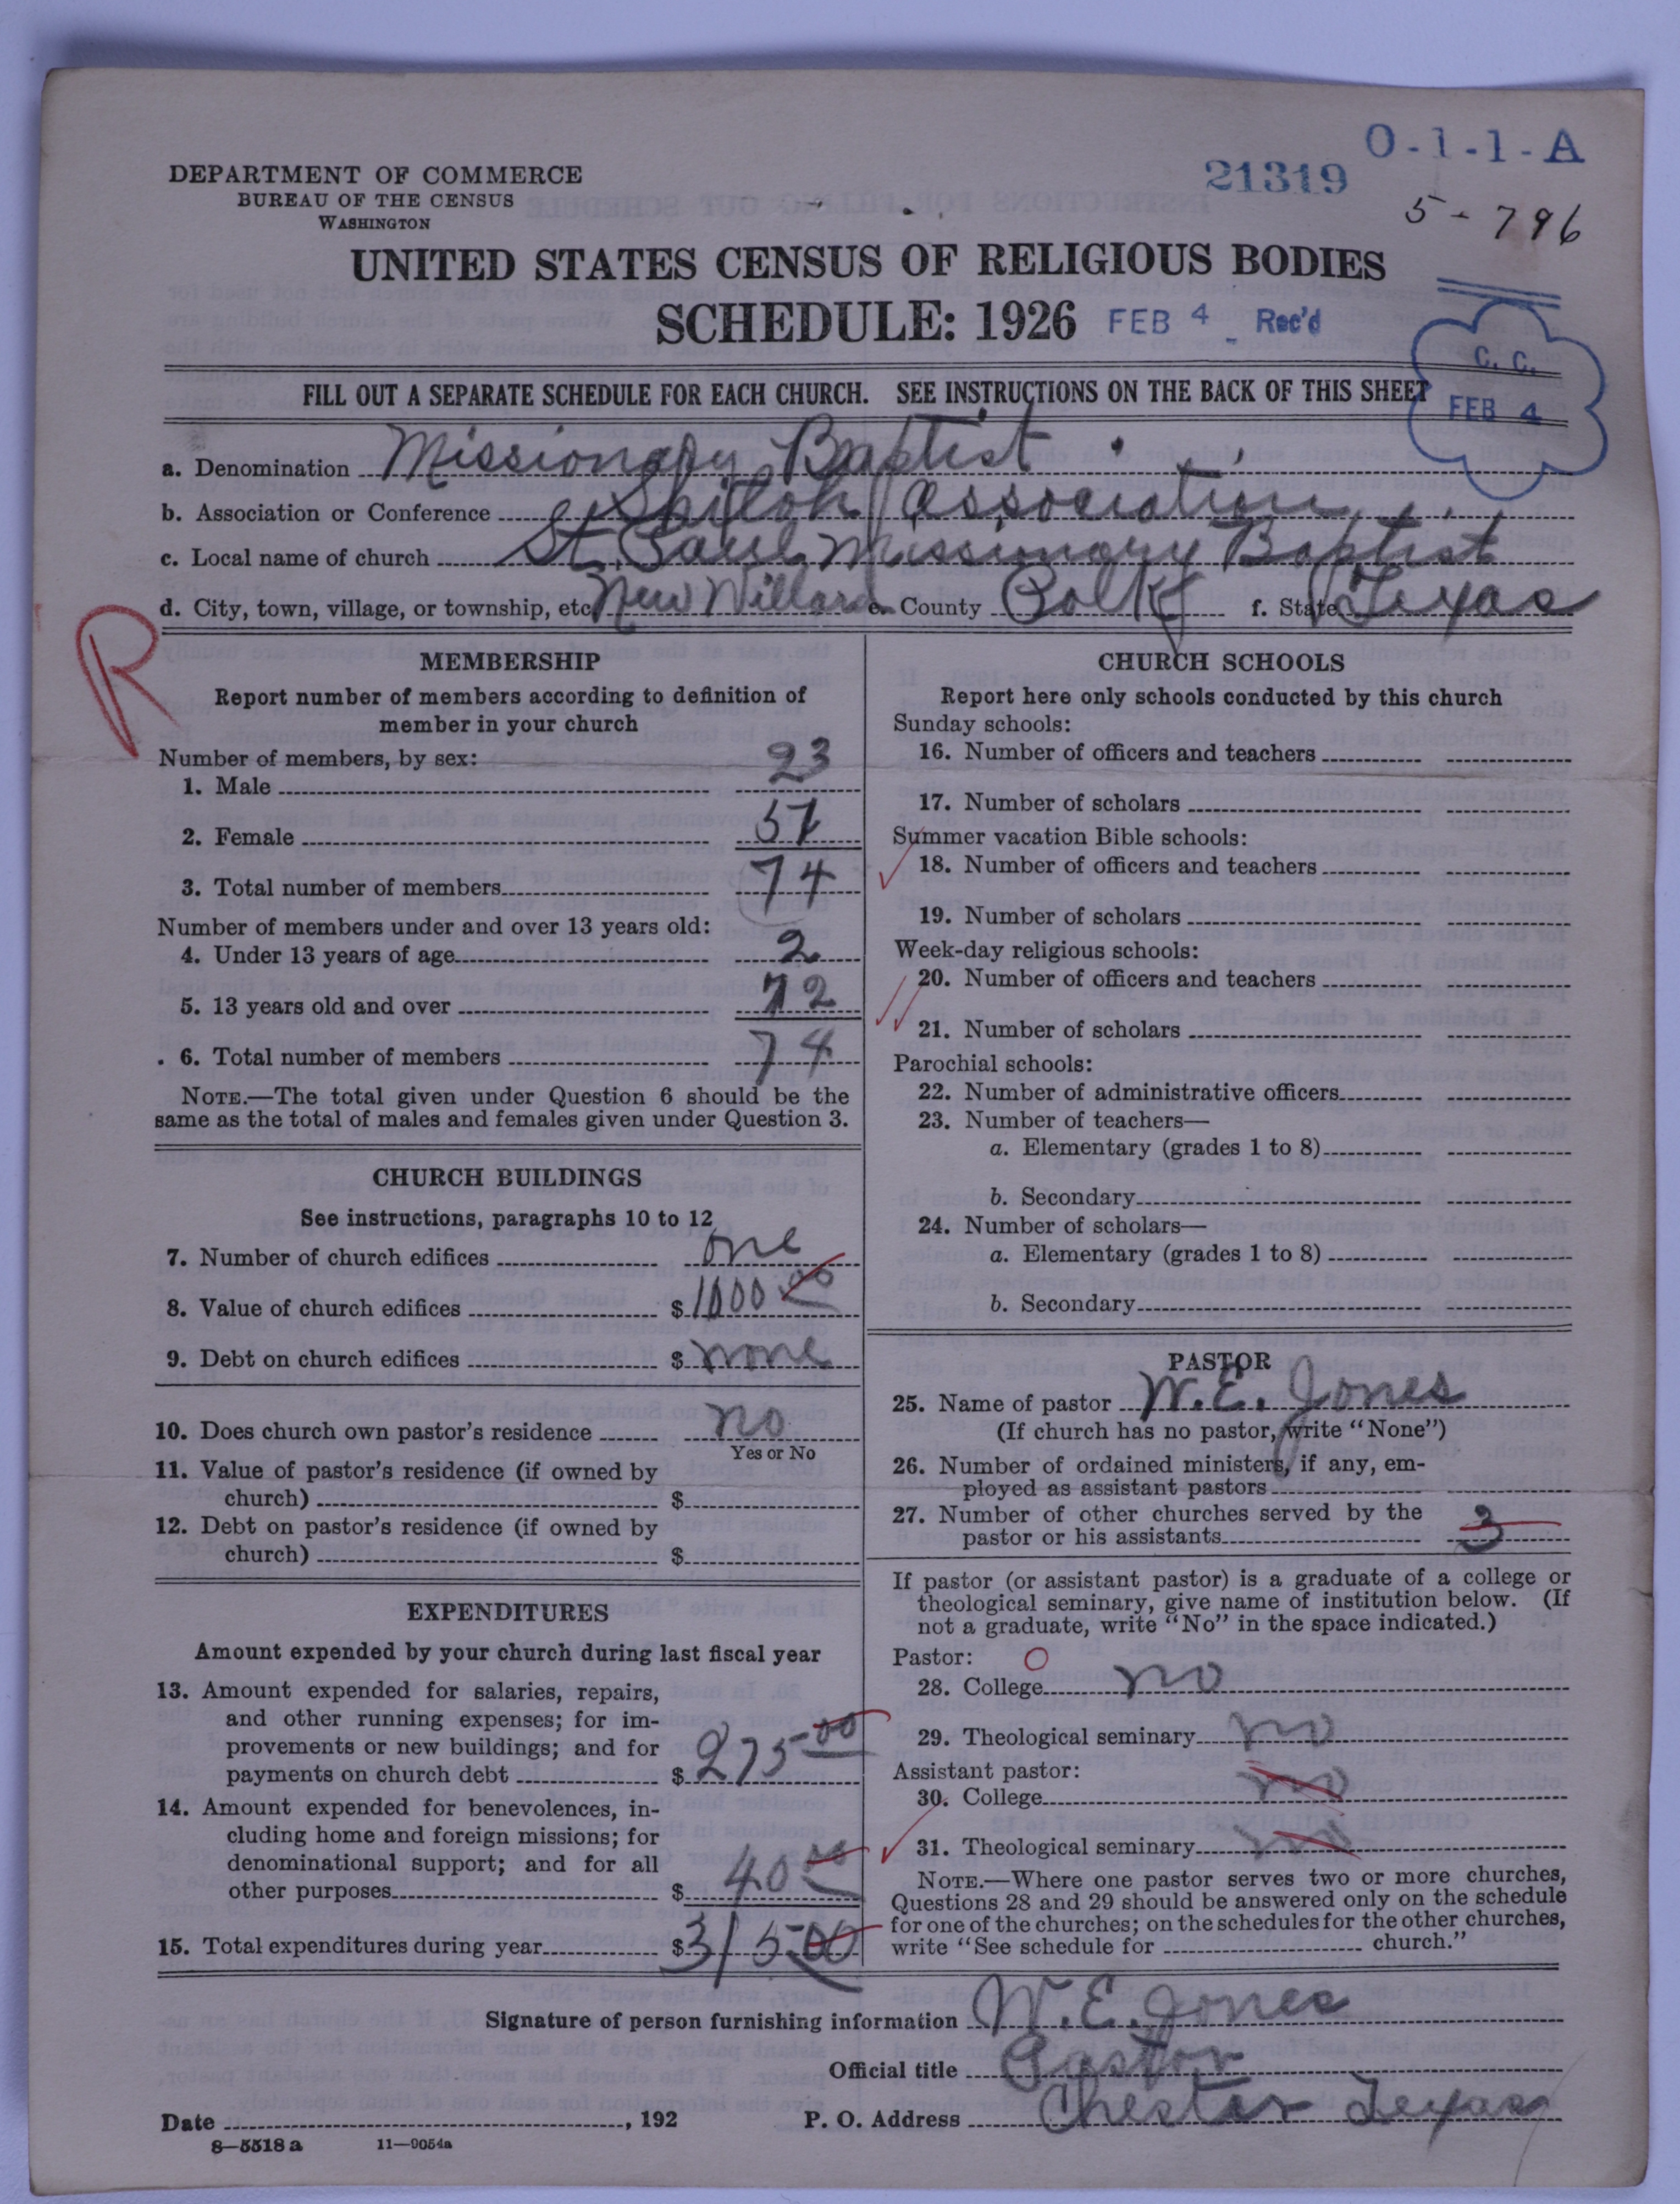 O-1-1-A
21319
5-796
DEPARTMENT OF COMMERCE
BUREAU OF THE CENSUS
WASHINGTON
UNITED STATES CENSUS OF RELIGIOUS BODIES
SCHEDULE: 1926 FEB 4 Rec'd
C. C.
FEB 4
FILL OUT A SEPARATE SCHEDULE FOR EACH CHURCH. SEE INSTRUCTIONS ON THE BACK OF THIS SHEET
a. Denomination Missionary Baptist
b. Association or Conference Shiloh Association
c. Local name of church St Paul Missionary Baptist
d. City, town, village, or township, etc. New Willard e. County Polk f. State Texas
R
MEMBERSHIP
Report number of members according to definition of
member in your church
Number of members, by sex:
1. Male 23
2. Female 51
3. Total number of members 74
Number of members under and over 13 years old:
4. Under 13 years of age 2
5. 13 years old and over 72
6. Total number of members 74
NOTE.—The total given under Question 6 should be the
same as the total of males and females given under Question 3.
CHURCH BUILDINGS
See instructions, paragraphs 10 to 12
7. Number of church edifices one
8. Value of church edifices $1000.00
9. Debt on church edifices $ none
10. Does church own pastor's residence no
Yes or No
11. Value of pastor's residence (if owned by
church) $
12. Debt on pastor's residence (if owned by
church) $
EXPENDITURES
Amount expended by your church during last fiscal year
13. Amount expended for salaries, repairs,
and other running expenses; for im-
provements or new buildings; and for
payments on church debt $ 275 00
14. Amount expended for benevolences, in-
cluding home and foreign missions; for
denominational support; and for all
other purposes $ 40 00
15. Total expenditures during year $315 00
CHURCH SCHOOLS
Report here only schools conducted by this church
Sunday schools:
16. Number of officers and teachers
17. Number of scholars
Summer vacation Bible schools:
18. Number of officers and teachers
19. Number of scholars
Week-day religious schools:
20. Number of officers and teachers
21. Number of scholars
Parochial schools:
22. Number of administrative officers
23. Number of teachers—
a. Elementary (grades 1 to 8)
b. Secondary
24. Number of scholars—
a. Elementary (grades 1 to 8)
b. Secondary
PASTOR
25. Name of pastor W. E. Jones
(If church has no pastor, write "None")
26. Number of ordained ministers, if any, em-
ployed as assistant pastors
27. Number of other churches served by the
pastor or his assistants 3
If pastor (or assistant pastor) is a graduate of a college or
theological seminary, give name of institution below. (If
not a graduate, write "No" in the space indicated.)
Pastor: O
28. College no
29. Theological seminary no
Assistant pastor:
30. College no
31. Theological seminary no
NOTE.—Where one pastor serves two or more churches,
Questions 28 and 29 should be answered only on the schedule
for one of the churches; on the schedules for the other churches,
write "See schedule for church."
Signature of person furnishing information W. E. Jones
Official title Pastor
Date , 192 P. O. Address Chester Texas
8—5518 a 11—9054a